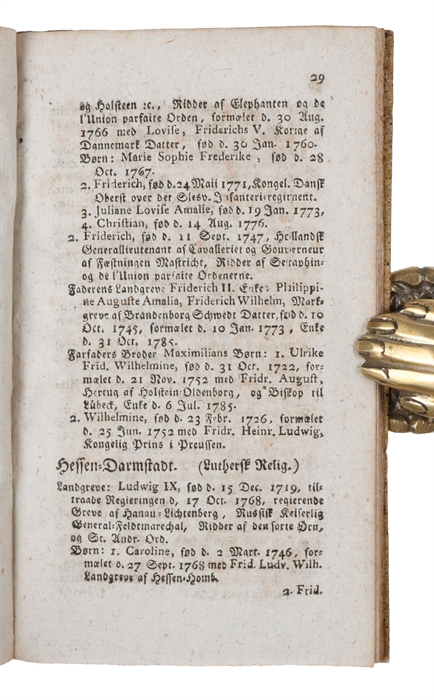 29
og Holsteen ꝛc., Ridder af Elephanten og de
l'Union parfaite Orden, formælet d. 30 Aug.
1766 med Lovise, Friderichs V. Konge af
Dannemark Datter, fød d. 30 Jan. 1760.
Børn: Marie Sophie Frederike, fød d. 28
Oct. 1767.
2. Friderich, fød d. 24 Maii 1771, Kongel. Dansk
Oberst over det Slesv. Infanteri-regiment.
3. Juliane Lovise Amalie, fød d. 19 Jan. 1773,
4. Christian, fød d. 14 Aug. 1776.
2. Friderich, fød d. 11 Sept. 1747, Hollandsk
Generallieutenant af Cavalleriet og Gouverneur
af Fæstningen Mastricht, Ridder af Seraphin-
og de l'Union parfaite Ordenerne.
Faderens Landgreve Friderich II. Enke: Philippi-
ne Auguste Amalia, Friderich Wilhelm, Mark-
greve af Brandenborg Schwedt Datter, fød d. 10
Oct. 1745, formælet d. 10 Jan. 1773, Enke
d. 31 Oct. 1785.
Farfaders Broder Maximilians Børn: 1. Ulrike
Frid. Wilhelmine, fød d. 31 Oct. 1722, for-
mælet d. 21 Nov. 1752 med Fridr. August,
Hertug af Holstein-Oldenborg, og Biskop til
Lübeck, Enke d. 6 Jul. 1785.
2. Wilhelmine, fød d. 23 Febr. 1726, formælet
d. 25 Jun. 1752 med Fridr. Heinr. Ludwig,
Kongelig Prins i Preussen.
Hessen-Darmstadt. (Luthersk Relig.)
Landgreve: Ludwig IX, fød d. 15 Dec. 1719, til-
traade Regieringen d, 17 Oct. 1768, regierende
Greve af Hanau-Lichtenberg, Russisk Keiserlig
General-Feldtmarechal, Ridder af den sorte Ørn,
og St. Andr. Ord.
Børn: 1. Caroline, fød d. 2 Mart. 1746, for-
mælet d. 27 Sept. 1768 med Frid. Ludv. Wilh.
Landgreve af Hessen-Homb.
2. Frid.